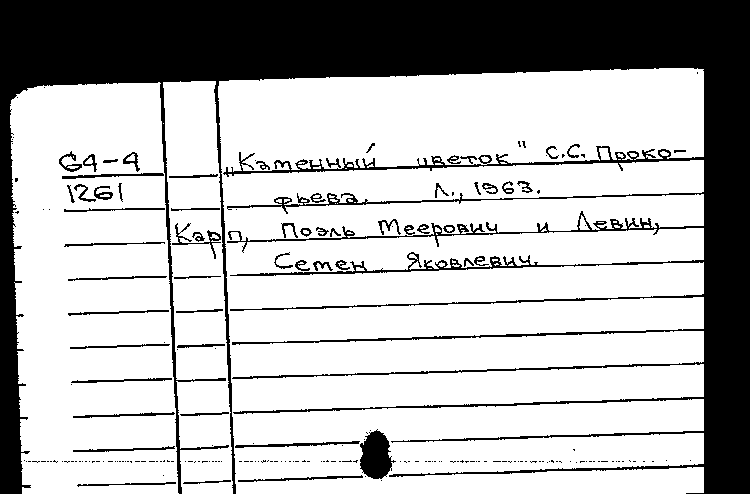 64-4 „Каменный цветок" С.С. Проко-
1261 фьева. Л., 1963.
Карп, Поэль Меерович и Левин,
Семен Яковлевич.